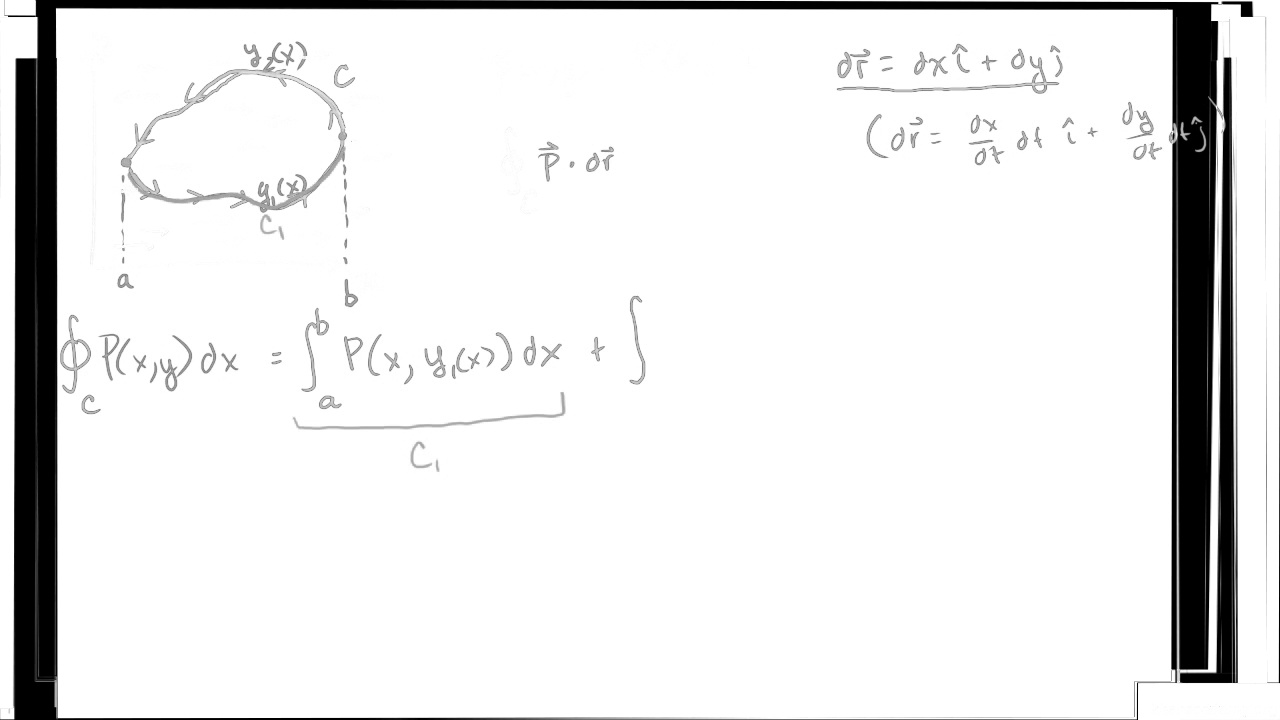 y₂(x)
C
y₁(x)
C₁
a
b
P⃗ · dr⃗
dr⃗ = dx î + dy ĵ
(dr⃗ = dx/dt dt î + dy/dt dt ĵ)
∮_C P(x,y) dx = ∫_a^b P(x, y₁(x)) dx + ∫
C₁